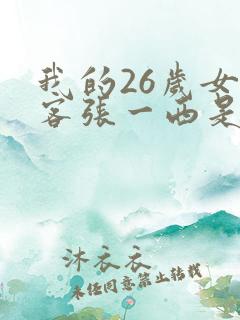 我的26歲女
客張一西是
沐衣衣
未任同意禁止转载